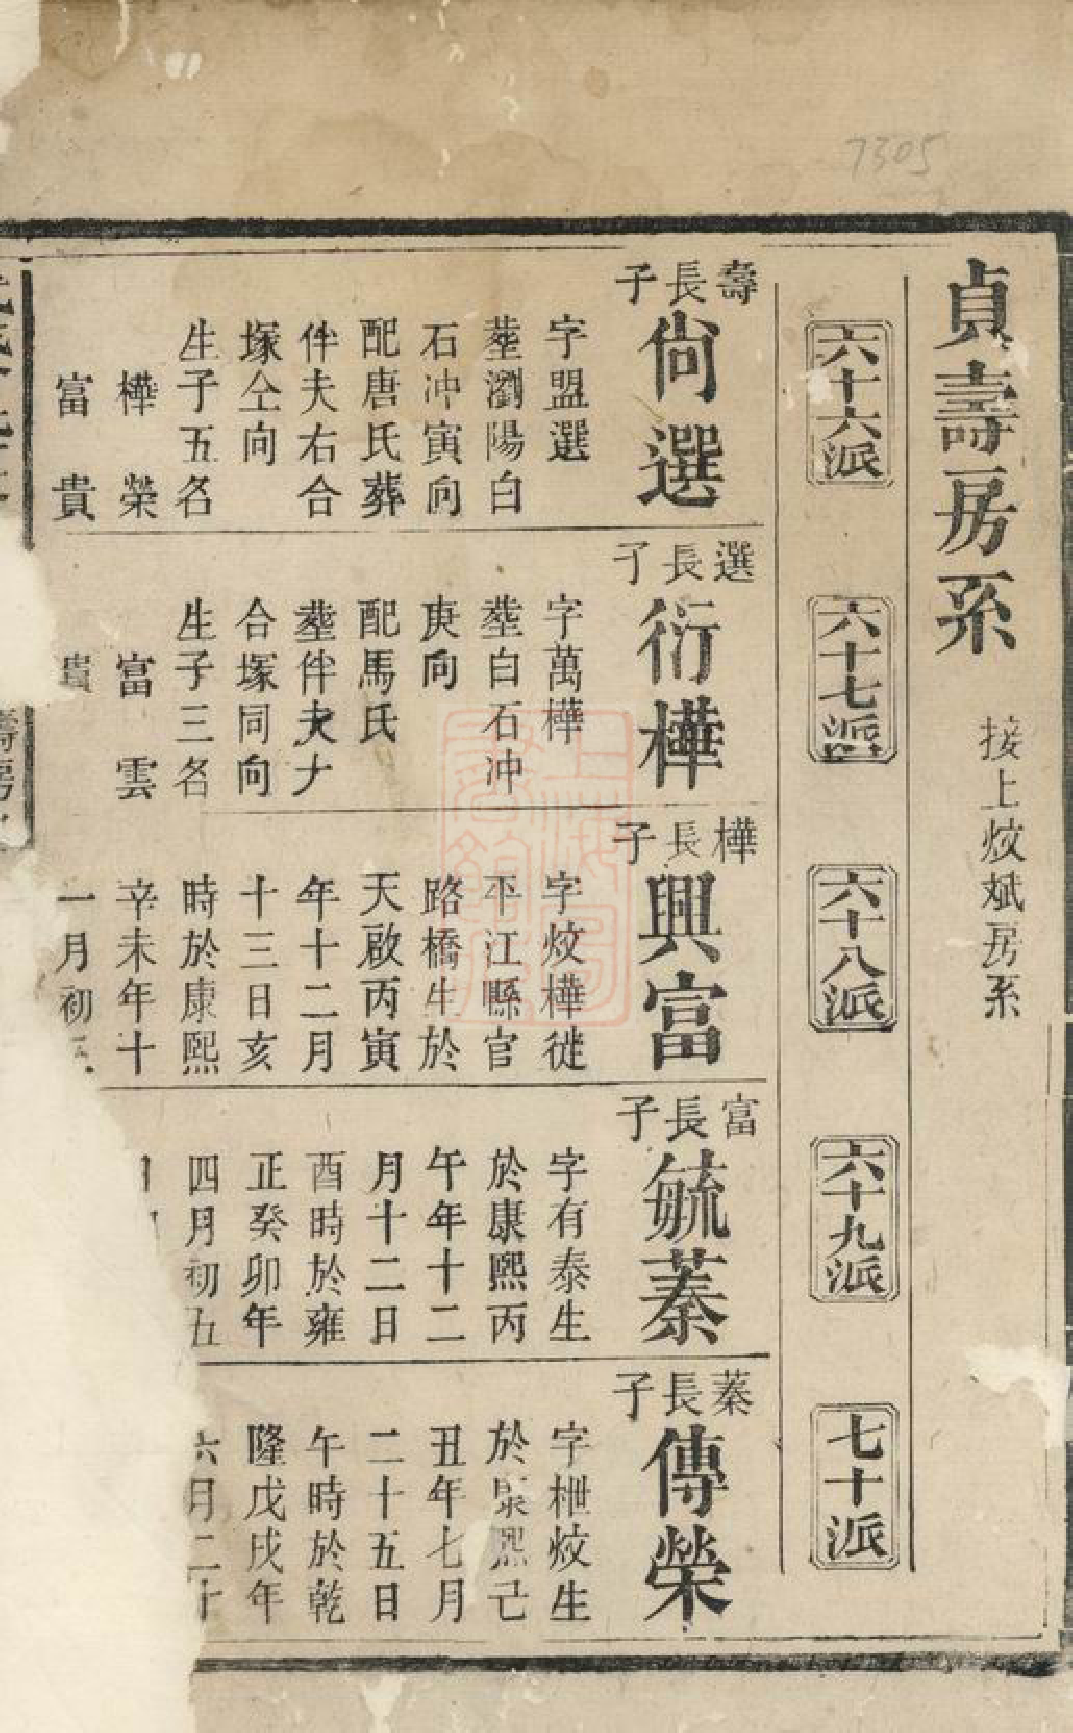 7305
貞壽房系 接上炆斌房系
六十六派
六十七派
六十八派
六十九派
七十派
壽長子
尙選
字盟選
塟瀏陽白
石冲寅向
配唐氏葬
伴夫右合
塚仝向
生子五名
樺榮
富貴
選長子
衍樺
字萬樺
塟白石冲
庚向
配馬氏
塟伴夫𠂇
合塚同向
生子三名
富雲
貴
樺長子
興富
字炆樺徙
平江縣官
路橋生於
天啟丙寅
年十二月
十三日亥
時於康熙
辛未年十
一月初
富長子
毓蓁
字有泰生
於康熙丙
午年十二
月十二日
酉時於雍
正癸卯年
四月初五
蓁長子
傳榮
字枻炆生
於康熙己
丑年七月
二十五日
午時於乾
隆戊戌年
六月二十
壽房
上海圖書館藏